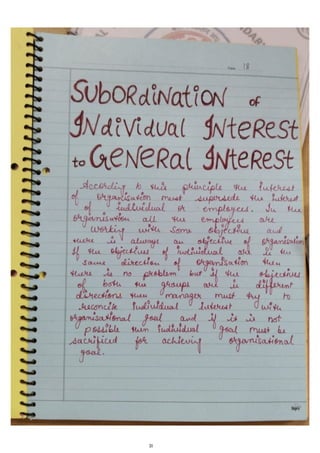 Date 18
SUBORDINATION OF
INDIVIDUAL INTEREST
to GENERAL INTEREST
According to this principle the interest
of organisation must supersede the interest
of individual or employees. In the
organisation all the employees are
working with some objective and
there is always an objective of organisation
If the objectives of individual are in the
same direction of organisation then
there is no problem but if the objectives
of both the groups are in different
directions then manager must try to
reconcile individual interest with
organisational goal and if it is not
possible then individual goal must be
sacrificed for achieving organisational
goal.